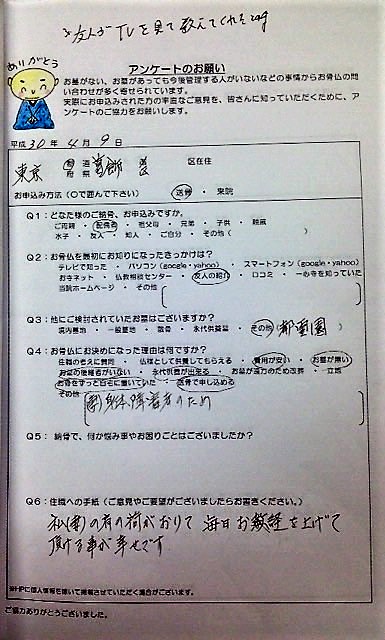 友人がTVを見て教えてくれた
ありがとう
アンケートのお願い
お墓がない、お墓があっても今後管理する人がいないなどの事情からお骨仏の問
い合わせが多く寄せられています。
実際にお申込みされた方の率直なご意見を、皆さんに知っていただくために、ア
ンケートのご協力をお願いします。
平成 30 年 4 月 9 日
東京 都 道 府 県 葛飾 区 区在住
お申込み方法（○で囲んで下さい） 送骨 ・ 来院
Q1：どなた様のご納骨、お申込みですか。
ご両親 ・ 配偶者 ・ 祖父母 ・ 兄弟 ・ 子供 ・ 親戚
水子 ・ 友人 ・ 知人 ・ ご自分 ・ その他（ ）
Q2：お骨仏を最初にお知りになったきっかけは？
テレビで知った ・ パソコン（google・yahoo） ・ スマートフォン（google・yahoo）
おきネット ・ 仏教相談センター ・ 友人の紹介 ・ 口コミ ・ 一心寺を知っていた
当院ホームページ ・ その他
Q3：他にご検討されていたお墓はございますか？
境内墓地 ・ 一般墓地 ・ 散骨 ・ 永代供養墓 ・ その他（都霊園）
Q4：お骨仏にお決めになった理由は何ですか？
住職の考えに賛同 ・ 仏様として供養してもらえる ・ 費用が安い ・ お墓が無い
お墓の後継者がいない ・ 永代供養が出来る ・ お墓が遠方のため改葬 ・ 立地
お骨をずっと自宅に置いていた ・ 送骨で申し込める
その他
(妻)身体障害者のため
Q5：納骨で、何か悩み事やお困りごとはございましたか？
Q6：住職への手紙（ご意見やご要望がございましたらお書きください。）
私(妻)の肩の荷がおりて 毎日お経を上げて
頂ける事が幸せです
※HPに個人情報を除いて掲載させていただく場合がございます。
ご協力ありがとうございました。